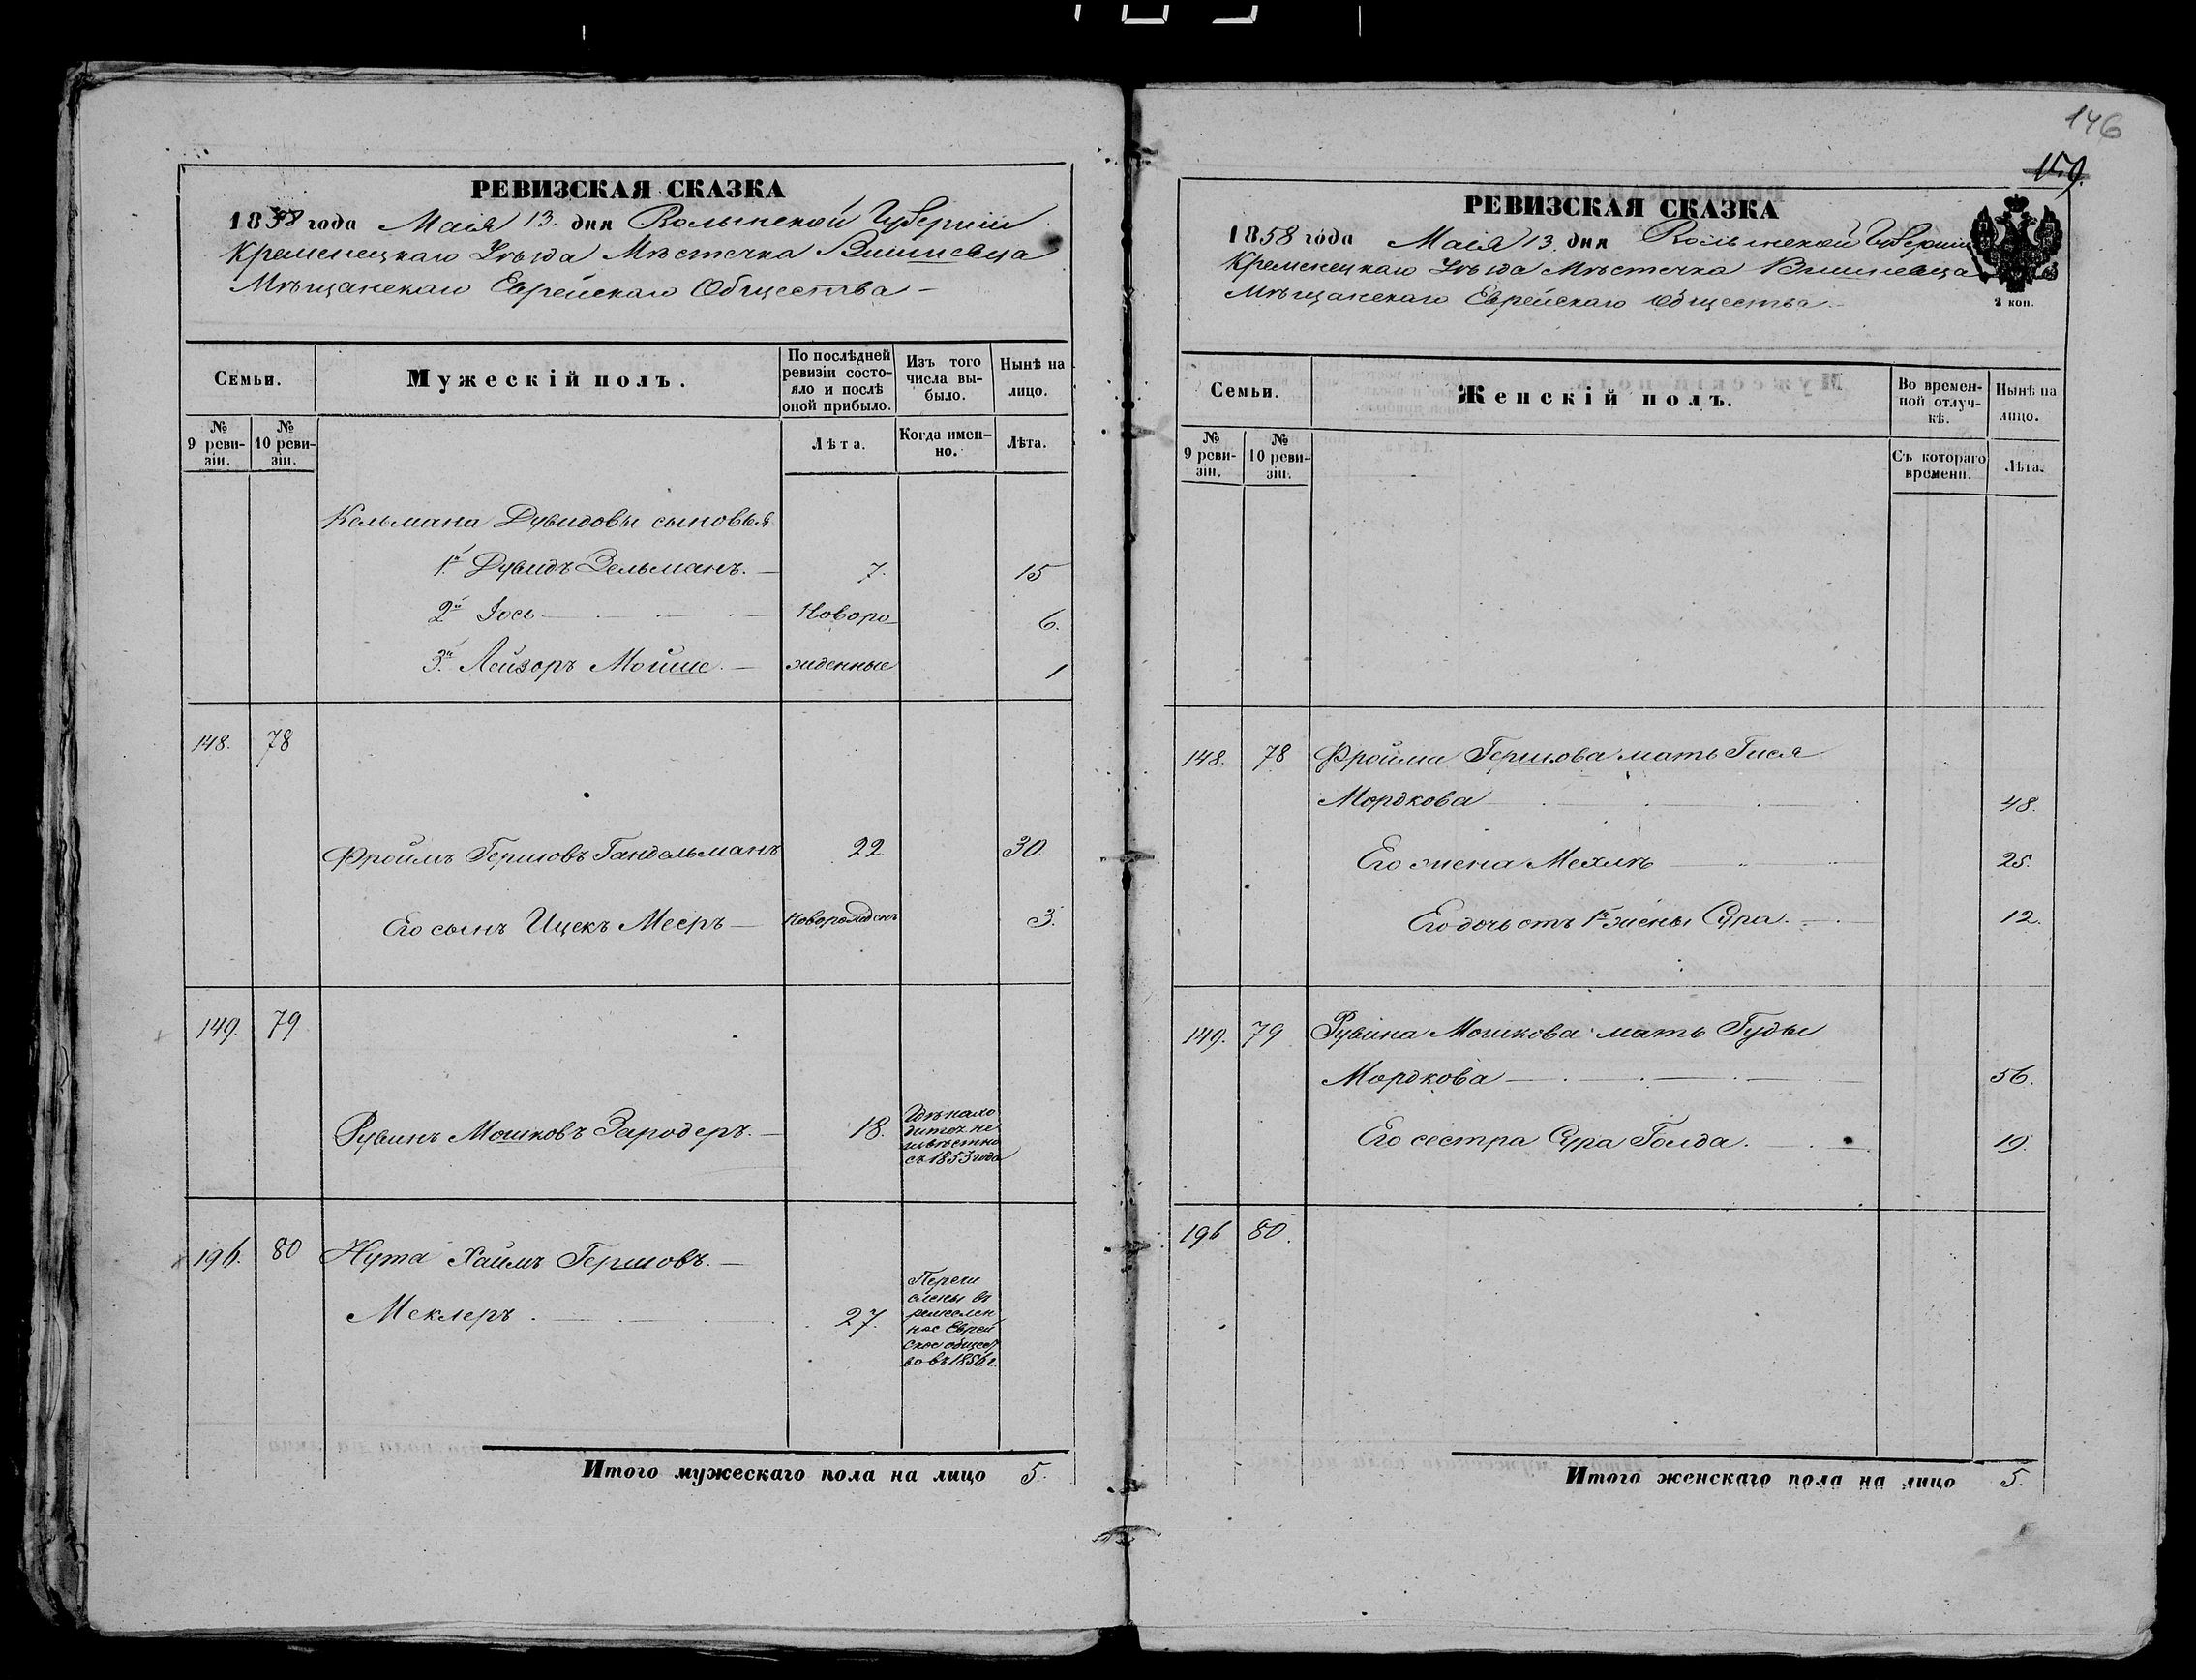 146
159.
РЕВИЗСКАЯ СКАЗКА
1858 года Маія 13. дня Волынской Губерніи
Кременецкаго Уѣзда Мѣстечка Вишневца
Мѣщанскаго Еврейскаго Общества
Семьи.
Мужескій полъ.
По послѣдней ревизіи состояло и послѣ оной прибыло.
Изъ того числа выбыло.
Нынѣ на лицо.
№ 9 ревизіи.
№ 10 ревизіи.
Лѣта.
Когда именно.
Лѣта.
Кельмана Дувидовы сыновья
1й Дувидъ Зельманъ. 7. 15
2й Іось Новоро 6.
3й Лейзоръ Мойше. жденные 1
148. 78
Фроимъ Гершовъ Гандельманъ 22. 30.
Его сынъ Ицекъ Мееръ Новорожденъ 3.
149. 79
Рувинъ Мошковъ Зародеръ. 18.
Гдѣ нахо
дится не
извѣстно
съ 1853 года
196. 80 Нута Хаимъ Гершовъ.
Меклеръ 27.
Перечи
слены въ
ремеслен
ное Еврей
ское общест
во въ 1856 г.
Итого мужескаго пола на лицо 5.
РЕВИЗСКАЯ СКАЗКА
1858 года Маія 13. дня Волынской Губерніи
Кременецкаго Уѣзда Мѣстечка Вишневца
Мѣщанскаго Еврейскаго Общества
2 коп.
Семьи.
Женскій полъ.
Во временной отлучкѣ.
Нынѣ на лицо.
№ 9 ревизіи.
№ 10 ревизіи.
Съ котораго времени.
Лѣта.
148. 78 Фройма Гершова мать Гися
Мордкова 48.
Его жена Мехлѣ 25.
Его дочь отъ 1й жены Сура. 12.
149. 79 Рувина Мошкова мать Гуды
Мордкова 56.
Его сестра Сура Голда. 19.
196 80.
Итого женскаго пола на лицо 5.